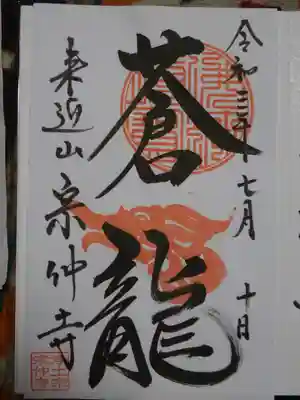 令和三年七月十日
蒼龍
来迎山宗仲寺